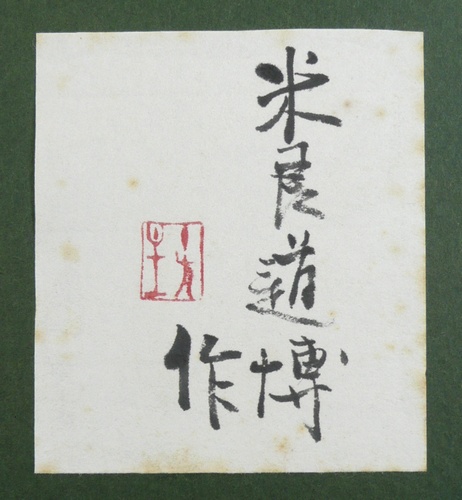 米良道博
作